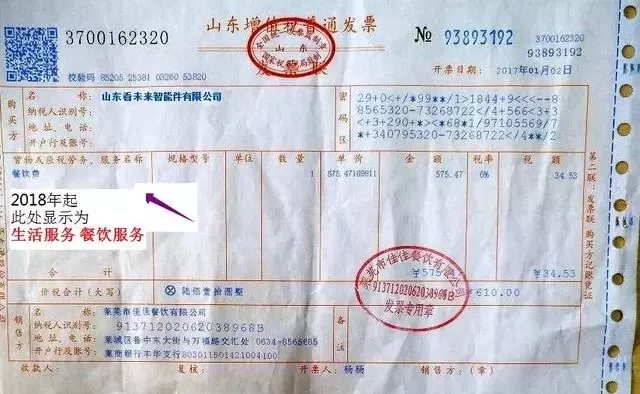 3700162320
山东增值税普通发票
№ 93893192
93893192
校验码 85205 25381 03260 53820
开票日期：2017年01月02日
购买方
名称：山东看未来智能件有限公司
纳税人识别号：
地址、电话：
开户行及账号：
密码区
29+0<+/*99**/1>1844+9<<--8
8565320-73268722/4+566<3+3
<+3+290+*><*68*1/97105569/7
*+340795320-73268722/4**/2
货物或应税劳务、服务名称 规格型号 单位 数量 单价 金额 税率 税额
餐饮费 1 575.47169811 575.47 6% 34.53
2018年起
此处显示为
生活服务 餐饮服务
合计 ¥34.53
价税合计（大写） ⊗ 陆佰壹拾圆整 ¥610.00
销售方
名称：莱芜市佳佳餐饮有限公司
纳税人识别号：91371202062038968B
地址、电话：莱城区鲁中东大街与万福路交汇处 0634-8565685
开户行及账号：莱商银行丰华支行803011501421004100
备注
莱芜市佳佳餐饮有限公司
91371202062038968B
发票专用章
收款人： 复核： 开票人：杨杨 销售方：（章）
第二联：发票联 购买方记账凭证